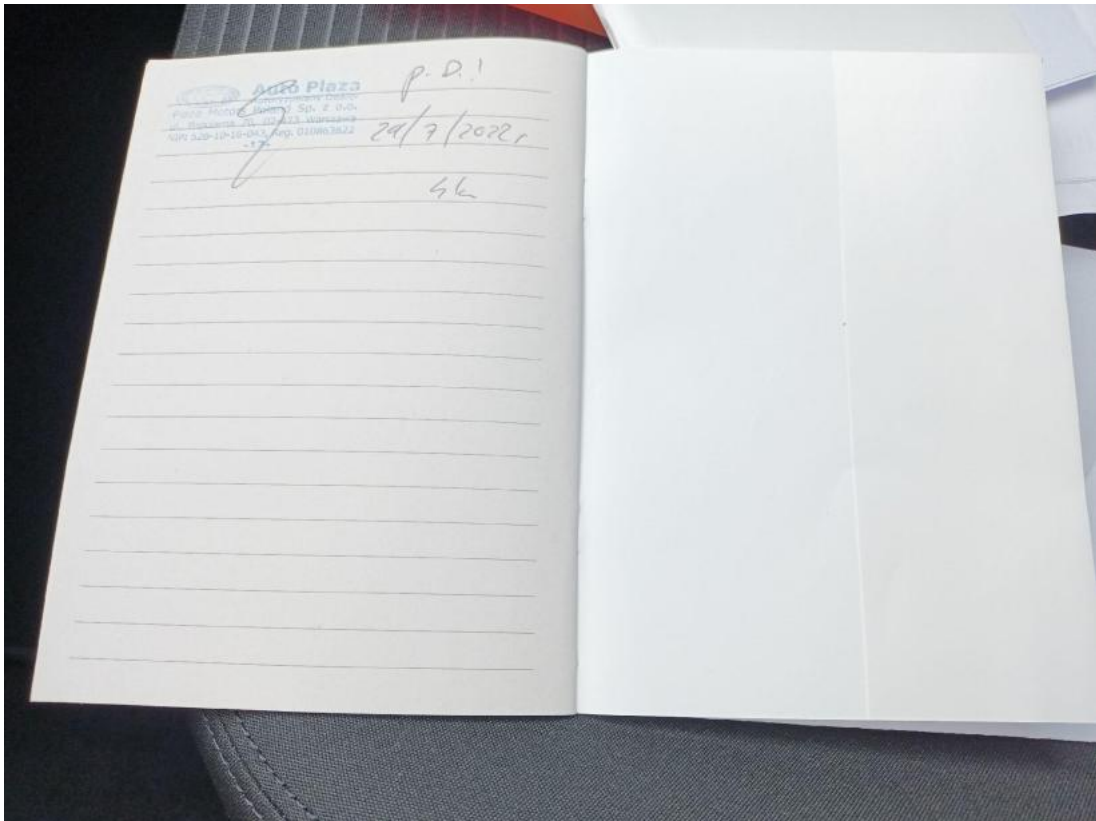 Auto Plaza
Plaza Motors Poland Sp. z o.o.
NIP: 526-10-16-043, Reg. 010863822
-17-
P. D. !
29/7/2022r